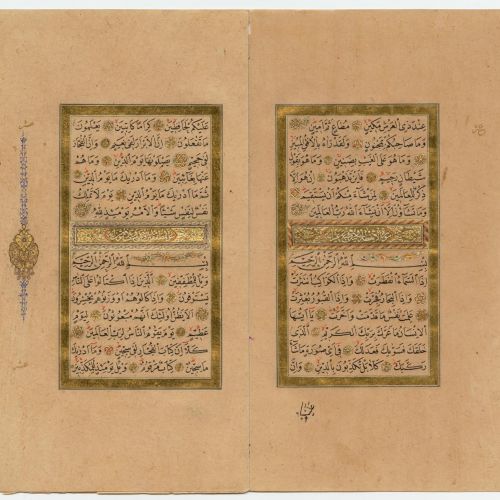 عند ذى العرش مكين مطاع ثم امين
وما صاحبكم بمجنون ولقد رآه بالافق المبين
وما هو على الغيب بضنين وما هو بقول
شيطان رجيم فاين تذهبون ان هو الا
ذكر للعالمين لمن شاء منكم ان يستقيم
وما تشاؤن الا ان يشاء الله رب العالمين
بسم الله الرحمن الرحيم
اذا السماء انفطرت واذا الكواكب انتثرت
واذا البحار فجرت واذا القبور بعثرت
علمت نفس ما قدمت واخرت يا ايها
الانسان ما غرك بربك الكريم الذى
خلقك فسويك فعدلك فى اى صورة ما شاء
ركبك كلا بل تكذبون بالدين وان
عليكم لحافظين كراما كاتبين يعلمون
ما تفعلون ان الابرار لفى نعيم وان الفجار
لفى جحيم يصلونها يوم الدين وما هم
عنها بغائبين وما ادريك ما يوم الدين
ثم ما ادريك ما يوم الدين يوم لا تملك
نفس لنفس شيئا والامر يومئذ لله
بسم الله الرحمن الرحيم
ويل للمطففين الذين اذا اكتالوا على الناس
يستوفون واذا كالوهم او وزنوهم يخسرون
الا يظن اولئك انهم مبعوثون ليوم
عظيم يوم يقوم الناس لرب العالمين
كلا ان كتاب الفجار لفى سجين وما ادريك
ما سجين كتاب مرقوم ويل يومئذ للمكذبين